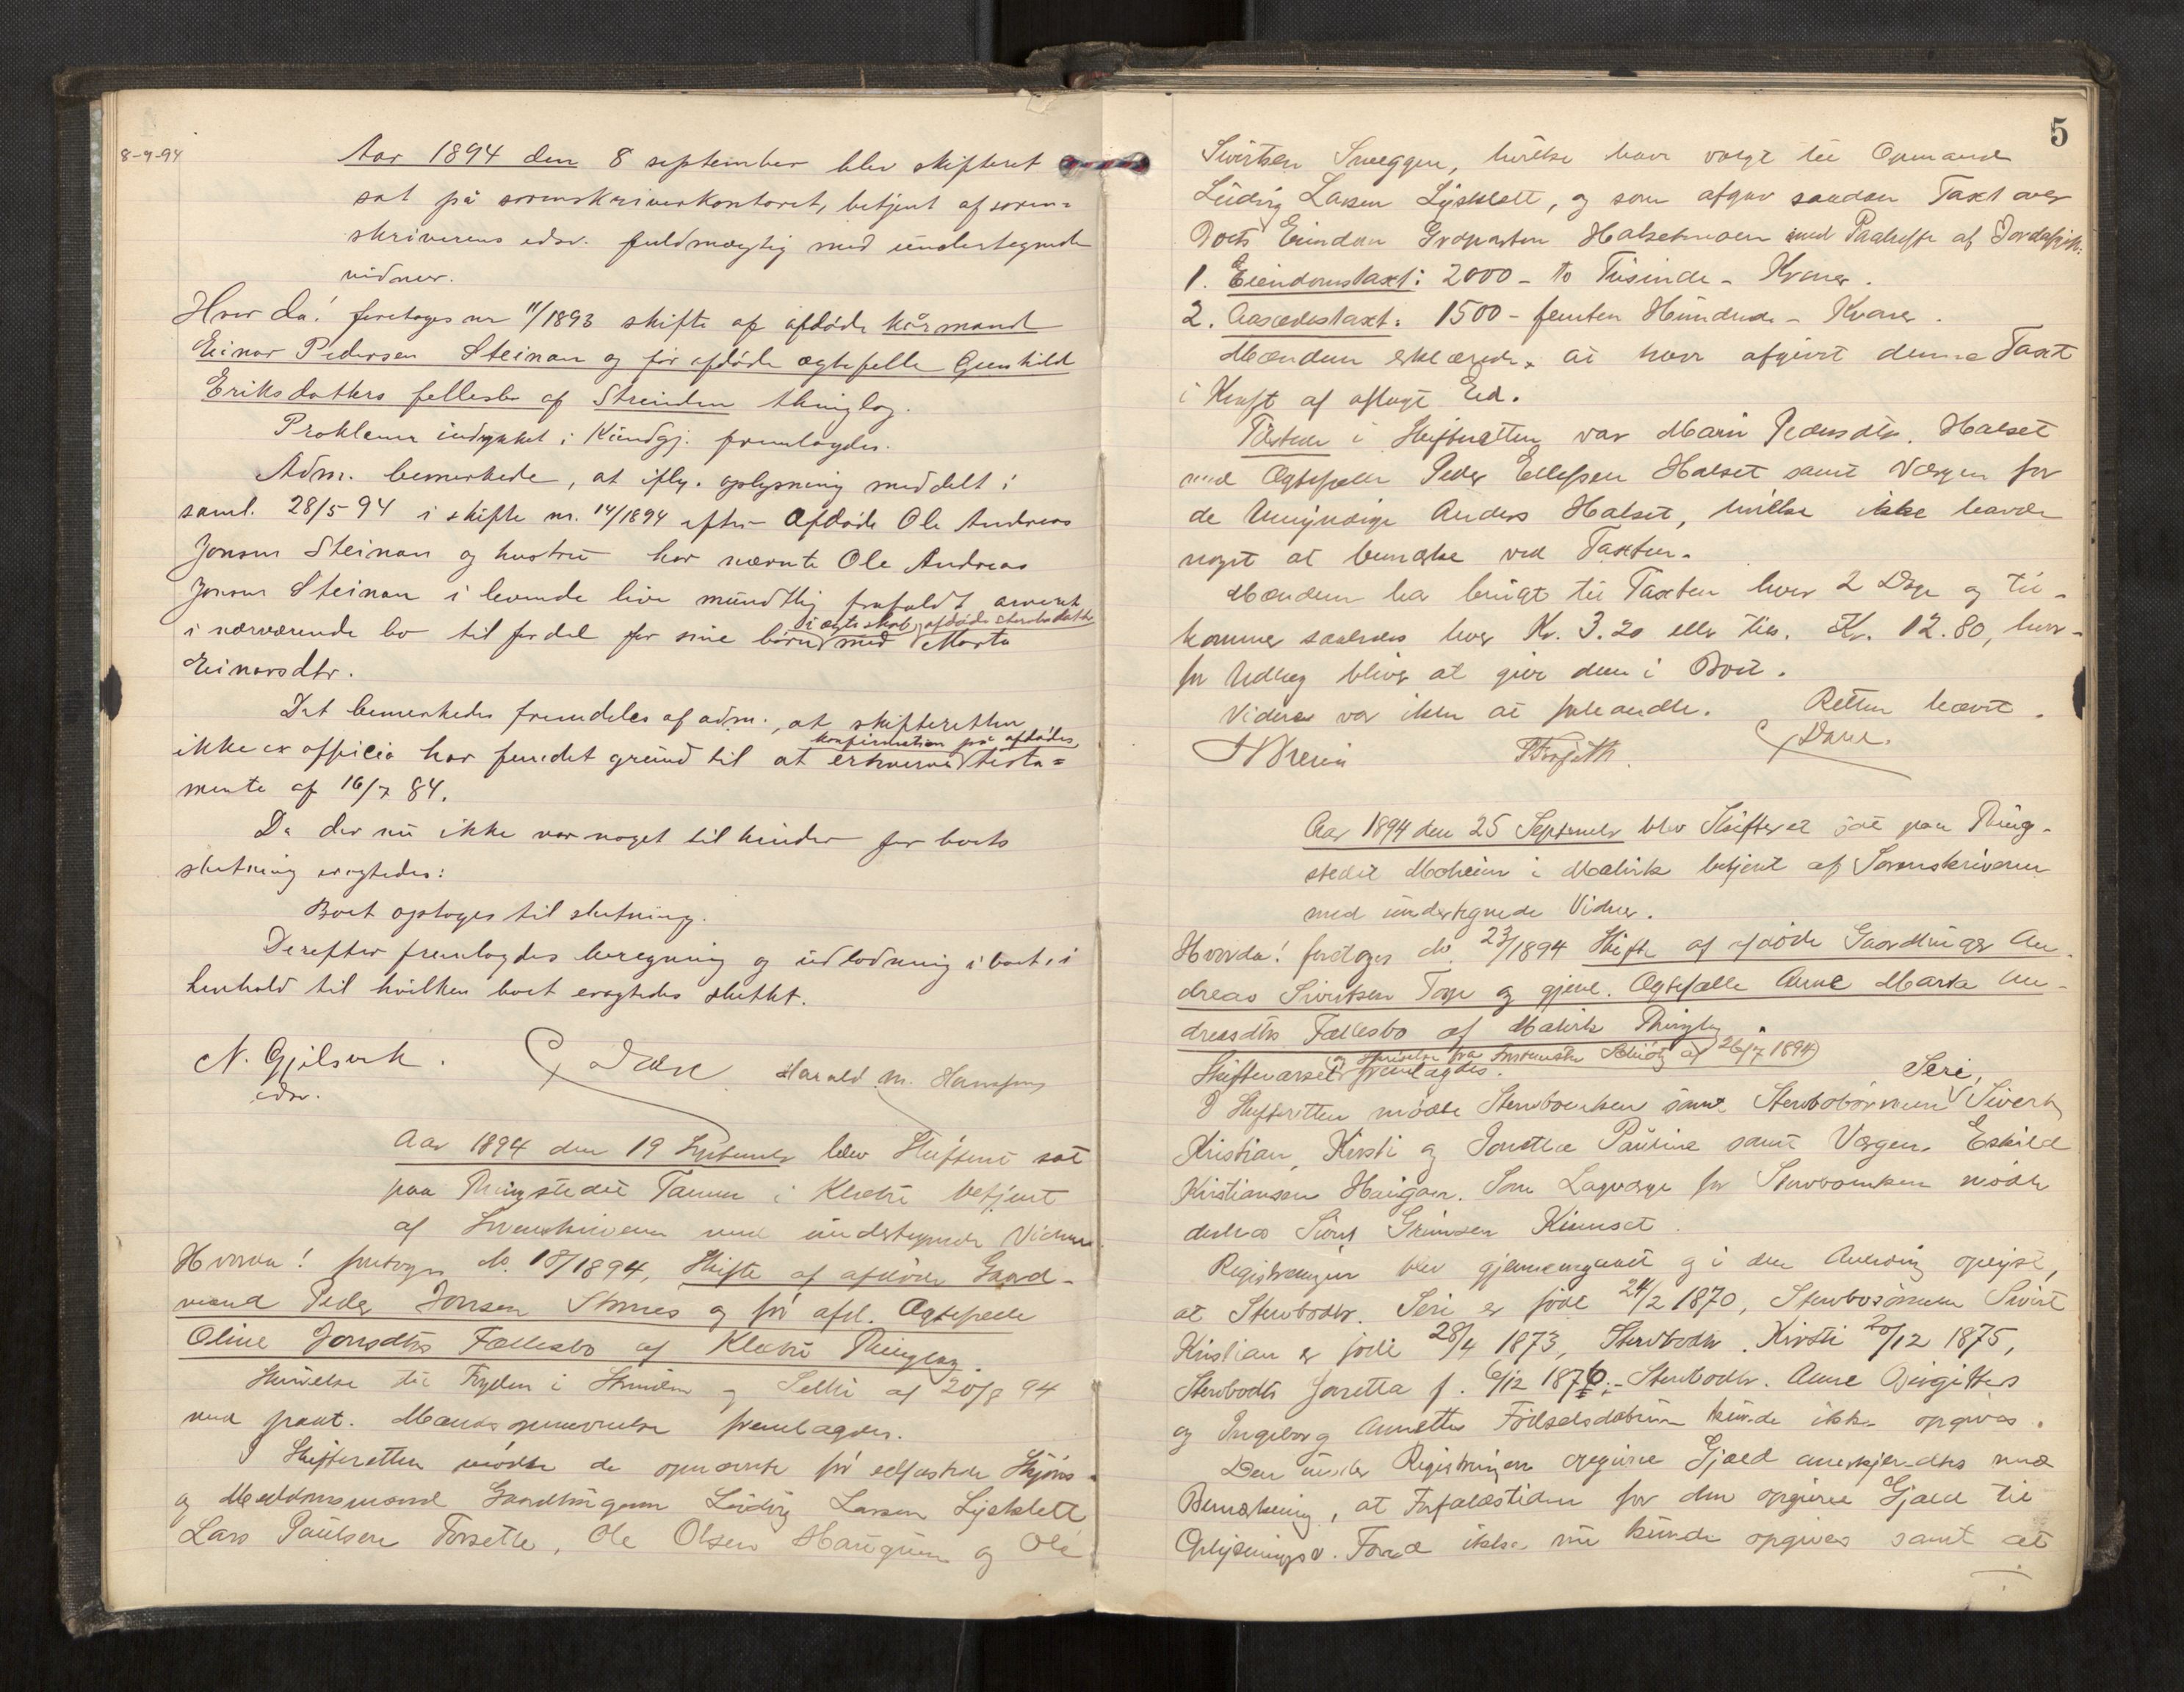 8-9-94
Aar 1894 den 8 september blev skifteret
sat på sorenskriverkontoret, betjent af soren=
skriverens edsv. fuldmægtig med undertegnede
vidner.
Hvor da! foretoges nr 11/1893 skifte af afdøde kårmand
Einar Pedersen Steinan og før afdøde ægtefelle Gunhild
Eriksdatters fellesbo af Strinden thinglag.
Proklama indrykket i Kundgj. fremlagdes.
Adm. bemerkede, at iflg. oplysning meddelt i
saml. 28/5-94 i skifte nr. 14/1894 efter Afdøde Ole Andreas
Jonsen Steinan og hustru har nævnte Ole Andreas
Jonsen Steinan i levende live mundtlig frafaldt arveret
i nærværende bo til fordel for sine børn i ægteskab med afdøde sterbodatter Marta
Einarsdtr.
Det bemerkedes fremdeles af adm., at skifteretten
ikke ex officio har fundet grund til at erhverve konfirmation på afdødes testa=
mente af 16/7 84.
Da der nu ikke var noget til hinder for boets
slutning eragtedes:
Boet optoges til slutning.
Derefter fremlagdes beregning og udlodning i boet, i
henhold til hvilken boet eragtedes sluttet.
N. Gjelsvik. Dahl Harald M. Hansen
edsv.
Aar 1894 den 19 September blev Skifteret sat
paa Thingstedet Tanem i Klæbu betjent
af Sorenskriveren med undertegnede Vidner.
Hvorda! foretoges No. 18/1894, Skifte af afdøde Gaard-
mand Peder Jonsen og før afd. Ægtefælle
Oline Jonsdtrs Fællesbo af Klæbu Thinglag.
Skrivelse til Fogden i Strinden og Selbu af 20/8 94
med paat. Mændsopnævnelse fremlagdes.
I Skifteretten mødte de opnævnte før edfæstede Skjøns-
og Meddomsmænd Gaardbrugerne Ludvig Larsen Lysklett
Lars Paulsen Forsetle, Ole Olsen Haugum og Ole
5
Sivertsen Sneeggen, hvilke havr valgt til Opmand
Ludvig Larsen Lysklett, og som afgav saadan Taxt over
Boets Eiendom Grdparten Halsetmoen med Paahefte af
1. Eiendomstaxt: 2000 - to Tusinde - Kroner.
2. Aasædestaxt: 1500 - femten Hundrede - Kroner.
Mændene erklærede, at have afgivet denne Taxt
i Kraft af aflagt Ed.
Tilstede i Skifteretten var Marit Pedersdtr. Halset
med Ægtefælle Peder Ellefsen Halset samt Værgen for
de Umyndige Anders Halset, hvilke ikke havde
noget at bemærke ved Taxten.
Mændene har brugt til Taxten hver 2 Dage og til-
kommer saaledes hver Kr. 3.20 eller tils. Kr. 12.80, hvor-
for Udlæg bliver at give dem i Boet.
Videre var ikke at forhandle. Retten hævet.
Dahl.
Aar 1894 den 25 September blev Skifteret sat paa Thing-
stedet Moheim i Malvik betjent af Sorenskriveren
med undertegnede Vidner.
Hvorda! foretoges No. 23/1894 Skifte af afdøde Gaardbruger An-
dreas Sivertsen Torp og gjenl. Ægtefælle Anne Marta An-
dreasdtrs Fællesbo af Malvik Thinglag.
Skiftevarsel og Skrivelse fra af 26/7 1894 fremlagdes.
I Skifteretten mødte Sterboenken samt Sterbobørnene Seri, Sivert
Kristian, Kirsti og Jonetta Pauline samt Værgen Eskild
Kristiansen Haugan. Som Lagværge for Sterboenken mødte
deshos Sivert Grimsen Kinnset.
Registreringen blev gjennemgaaet og i den Anledning oplyst,
at Sterbodtr. Seri er født 24/2 1870, Sterbosønnen Sivert
Kristian er født 28/4 1873, Sterbodtr. Kirsti 20/12 1875,
Sterbodtr Jonetta f. 6/12 1876. - Sterbodtr. Anne Birgittes
og Ingeborg Annettes Fødselsdatum kunde ikke opgives.
Den under Registreringen opgivne Gjæld anerkjendtes med
Bemærkning, at Forfaldstiden for den opgivne Gjæld til
Oplysningsv. Fond ikke nu kunde opgives samt at